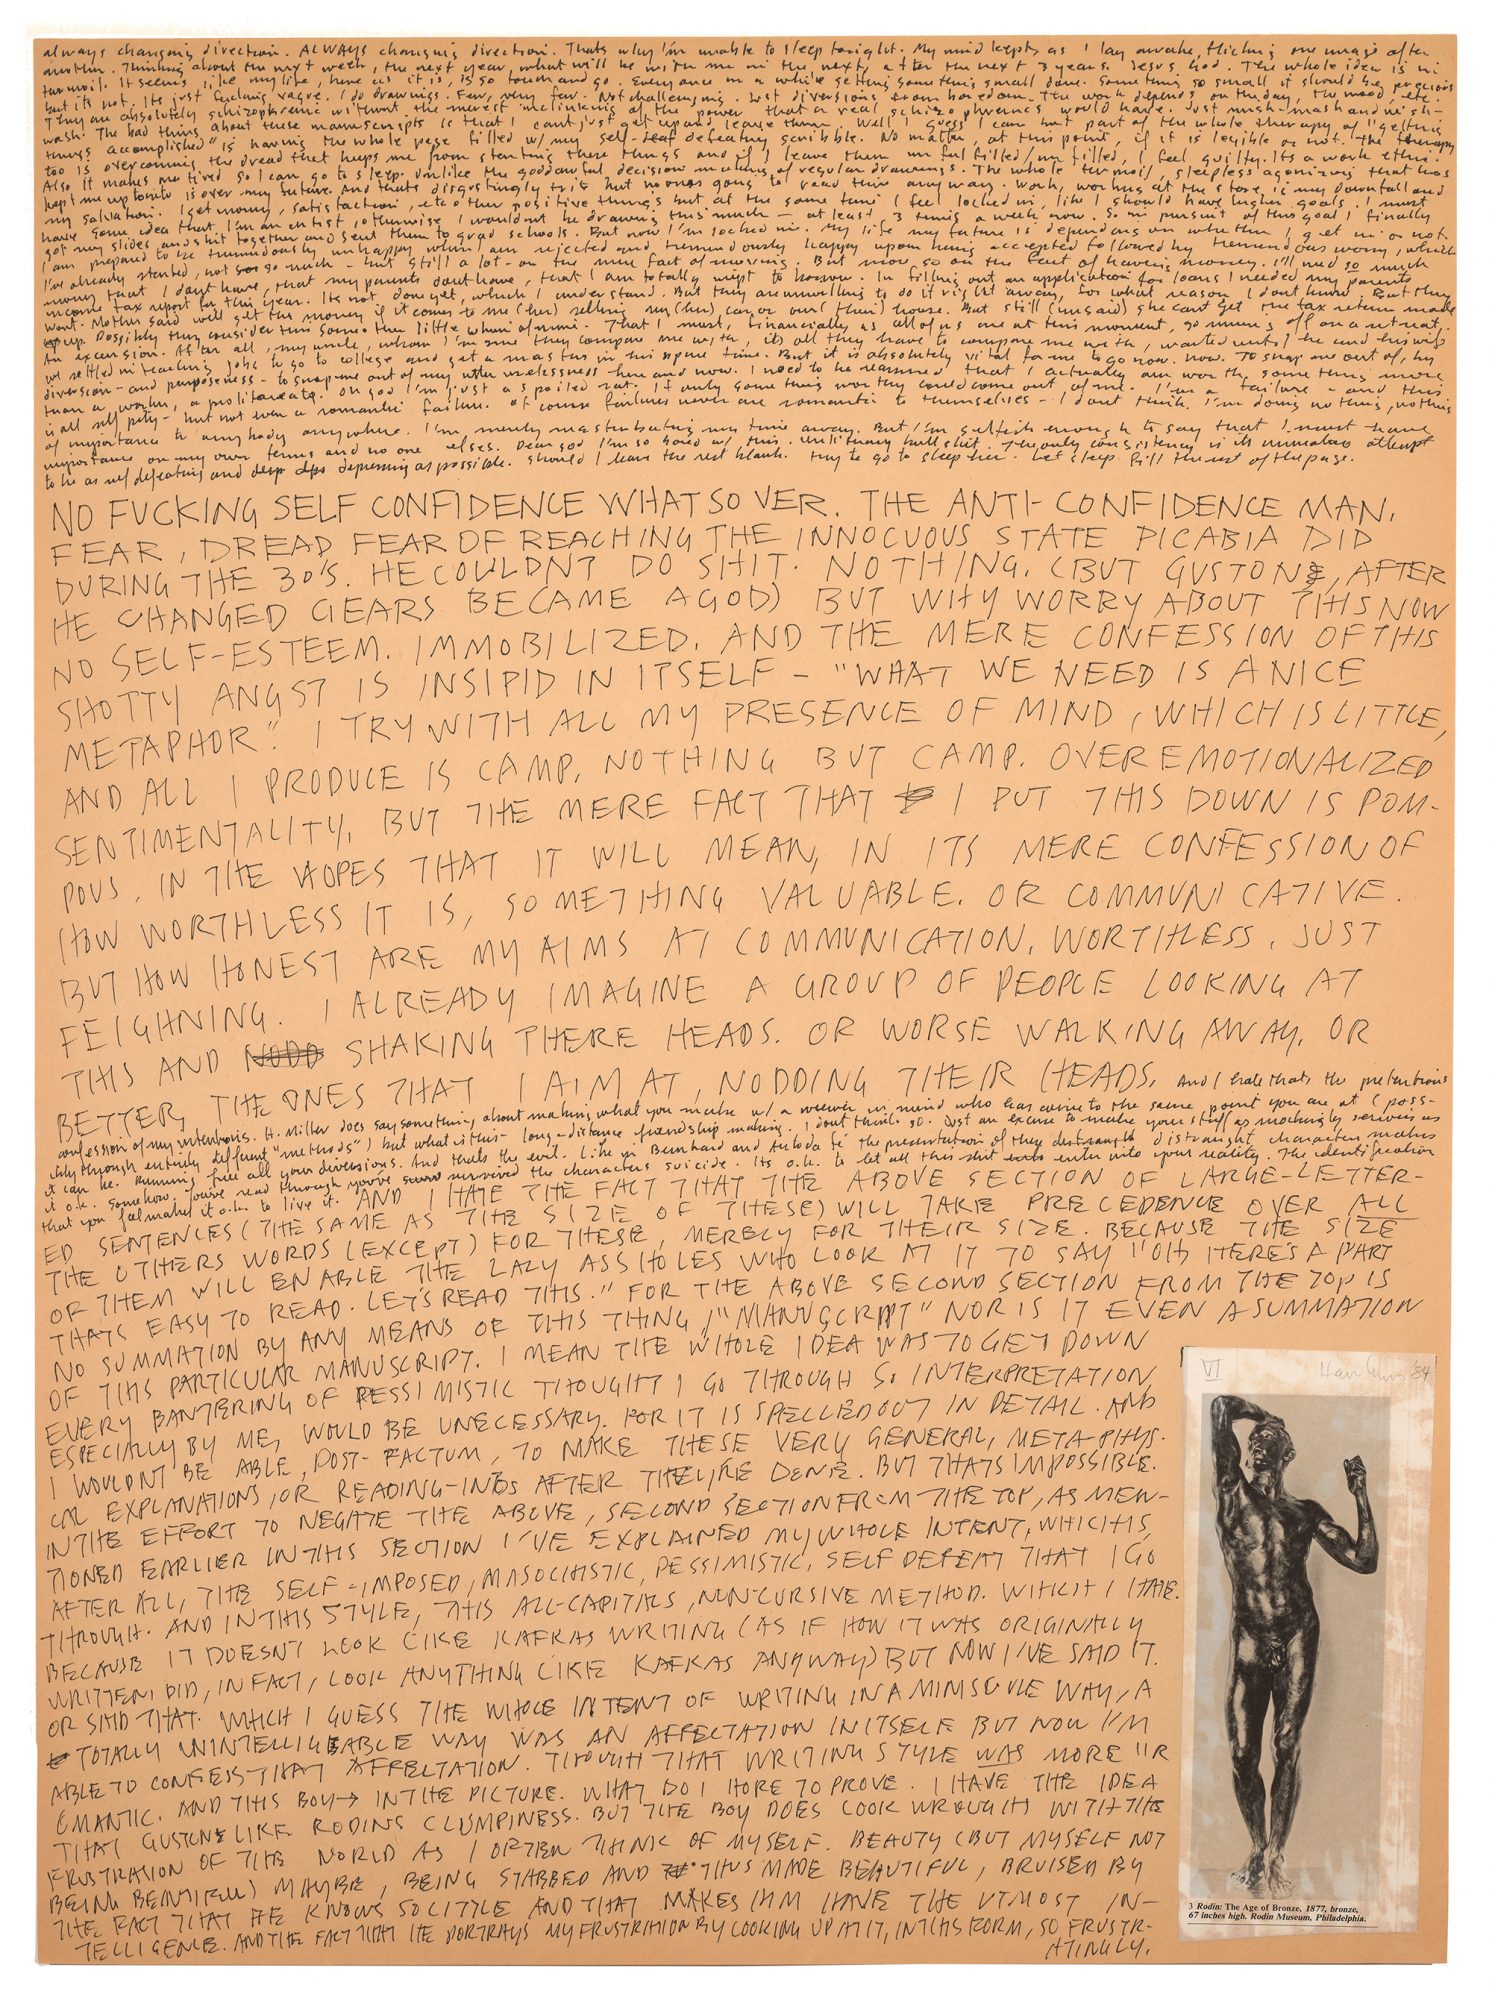 always changing direction. ALWAYS changing direction. Thats why I'm unable to sleep tonight. My mind kept, as I lay awake, flicking one image after
another. Thinking about the next week, the next year, what will be with me in the next, after the next 3 years. Jesus God. The whole idea is in
turmoil. It seems like my life, here as it is, is so touch and go. Every once in a while getting something small done. Something so small it should be precious
but its not. Its just fucking vague. I do drawings. Few, very few. Not challenging. Just diversions from boredom. The work depends on the day, the mood, etc.
They are absolutely schizophrenic without the merest inclinking of the power that a real schizophrenics would have. Just mish-mash and wish-
wash. The bad thing about these manuscripts is that I cant just get up and leave them. Well I guess I can but part of the whole therapy of "getting
things accomplished" is having the whole page filled w/ my self-defeating scribble. No matter, at this point, if it is legible or not. The therapy
too is overcoming the dread that keeps me from starting these things and if I leave them unfulfilled/unfilled, I feel guilty. Its a work ethic.
Also it makes me tired so I can go to sleep. Unlike the goddawful decision making of regular drawings. The whole turmoil, sleepless agonizing that has
kept me up tonite is over my future. And thats disgustingly trite but no ones going to read this anyway. Work, working at the store, is my downfall and
my salvation. I get money, satisfaction, etc other positive things but at the same time I feel locked in, like I should have higher goals. I must
have some idea that I'm an artist, otherwise I wouldnt be drawing this much - at least 3 times a week now. So in pursuit of this goal I finally
got my slides and shit together and sent them to grad schools. But now I'm socked in. My life my future is depending on whether I get in or not.
I am prepared to be tremendously unhappy when I am rejected and tremendously happy upon being accepted followed by tremendous worry, which
I've already started, not so much - but still a lot - on the mere fact of moving. But more so on the fact of having money. I'll need so much
money that I dont have, that my parents dont have, that I am totally inept to borrow. In filling out an application for loans I needed my parents
income tax report for this year. Its not done yet, which I understand. But they are unwilling to do it right away, for what reason I dont know. But they
wont. Mother said well get the money if it comes to me (her) selling my (her) car or our (their) house. But still (unsaid) she cant get the tax return made
up. Possibly they consider this some other little whim of mine. That I must, financially as all of us are at this moment, go running off on a retreat.
An excursion. After all, my uncle, whom I'm sure they compare me with, its all they have to compare me with, waited until he and his wife
were settled in teaching jobs to go to college and get a masters in his spare time. But it is absolutely vital for me to go now. now. To snap me out of, by
diversion - and purposeness - to snap me out of my utter uselessness here and now. I need to be reaffirmed that I actually am worth something more
than a worker, a proletareate. Oh god I'm just a spoiled rat. If only something worthy could come out of me. I'm a failure - and this
is all self pity - but not even a romantic failure. Of course failures never are romantic to themselves - I dont think. I'm doing nothing, nothing
of importance to anybody anywhere. I'm merely masturbating my time away. But I'm selfish enough to say that I must have
importance on my own terms and no one elses. Dear god I'm so bored w/ this unliterary bullshit. The only consistency is its immediate attempt
to be as self defeating and depressing as possible. Should I leave the rest blank. Try to go to sleep here. Let sleep fill the rest of the page.
NO FUCKING SELF CONFIDENCE WHAT SO VER. THE ANTI-CONFIDENCE MAN,
FEAR, DREAD FEAR OF REACHING THE INNOCUOUS STATE PICABIA DID
DURING THE 30'S. HE COULDNT DO SHIT. NOTHING. (BUT GUSTON, AFTER
HE CHANGED GEARS BECAME A GOD) BUT WHY WORRY ABOUT THIS NOW
NO SELF-ESTEEM. IMMOBILIZED. AND THE MERE CONFESSION OF THIS
SHOTTY ANGST IS INSIPID IN ITSELF - "WHAT WE NEED IS A NICE
METAPHOR". I TRY WITH ALL MY PRESENCE OF MIND, WHICH IS LITTLE,
AND ALL I PRODUCE IS CAMP. NOTHING BUT CAMP. OVER EMOTIONALIZED
SENTIMENTALITY. BUT THE MERE FACT THAT I PUT THIS DOWN IS POM-
POUS. IN THE HOPES THAT IT WILL MEAN, IN ITS MERE CONFESSION OF
HOW WORTHLESS IT IS, SOMETHING VALUABLE. OR COMMUNICATIVE.
BUT HOW HONEST ARE MY AIMS AT COMMUNICATION. WORTHLESS. JUST
FEIGHNING. I ALREADY IMAGINE A GROUP OF PEOPLE LOOKING AT
THIS AND NODD SHAKING THERE HEADS. OR WORSE WALKING AWAY. OR
BETTER, THE ONES THAT I AIM AT, NODDING THEIR HEADS. And I hate thats the pretentious
confession of my intentions. H. Miller does say something about making what you make w/ a viewer in mind who has come to the same point you are at (poss-
ibly through entirely different "methods") but what is this - long-distance friendship making. I dont think so. Just an excuse to make your stuff as mocking by serious as
it can be. Running free all your diversions. And thats the evil. Like in Bernhard and Autoda fé the presentation of these distraught characters makes
it o.k. Somehow you've read through you've survived the characters suicide. Its o.k. to let all this shit enter into your reality. The identification
that you feel makes it o.k. to live it. AND I HATE THE FACT THAT THE ABOVE SECTION OF LARGE-LETTER-
ED SENTENCES (THE SAME AS THE SIZE OF THESE) WILL TAKE PRECEDENCE OVER ALL
THE OTHERS WORDS (EXCEPT) FOR THESE, MERELY FOR THEIR SIZE. BECAUSE THE SIZE
OF THEM WILL ENABLE THE LAZY ASSHOLES WHO LOOK AT IT TO SAY "OH HERE'S A PART
THATS EASY TO READ. LET'S READ THIS." FOR THE ABOVE SECOND SECTION FROM THE TOP IS
NO SUMMATION BY ANY MEANS OF THIS THING, "MANUSCRIPT" NOR IS IT EVEN A SUMMATION
OF THIS PARTICULAR MANUSCRIPT. I MEAN THE WHOLE IDEA WAS TO GET DOWN
EVERY BANTERING OF PESSIMISTIC THOUGHT I GO THROUGH SO INTERPRETATION,
ESPECIALLY BY ME, WOULD BE UNECESSARY. FOR IT IS SPELLED OUT IN DETAIL. AND
I WOULDNT BE ABLE, POST-FACTUM, TO MAKE THESE VERY GENERAL, META-PHYS-
CAL EXPLANATIONS, OR READING-INTOS AFTER THEY'RE DONE. BUT THATS IMPOSSIBLE.
IN THE EFFORT TO NEGATE THE ABOVE, SECOND SECTION FROM THE TOP, AS MEN-
TIONED EARLIER IN THIS SECTION I'VE EXPLAINED MY WHOLE INTENT, WHICH IS,
AFTER ALL, THE SELF-IMPOSED, MASOCHISTIC, PESSIMISTIC, SELF DEFEAT THAT I GO
THROUGH. AND IN THIS STYLE, THIS ALL-CAPITALS, NON-CURSIVE METHOD. WHICH I HATE.
BECAUSE IT DOESNT LOOK LIKE KAFKAS WRITING (AS IF HOW IT WAS ORIGINALLY
WRITTEN DID, IN FACT, LOOK ANYTHING LIKE KAFKAS ANYWAY) BUT NOW I'VE SAID IT.
OR SAID THAT. WHICH I GUESS THE WHOLE INTENT OF WRITING IN A MINISCULE WAY, A
TOTALLY UNINTELLIGEABLE WAY WAS AN AFFECTATION IN ITSELF BUT NOW I'M
ABLE TO CONFESS THAT AFFECTATION. THOUGH THAT WRITING STYLE WAS MORE "R
OMANTIC. AND THIS BOY→ IN THE PICTURE. WHAT DO I HOPE TO PROVE. I HAVE THE IDEA
THAT GUSTON LIKE RODINS CLUMPINESS. BUT THE BOY DOES LOOK WROUGHT WITH THE
FRUSTRATION OF THE WORLD AS I OFTEN THINK OF MYSELF. BEAUTY (BUT MYSELF NOT
BEING BEAUTIFUL) MAYBE, BEING STABBED AND THUS MADE BEAUTIFUL, BRUISED BY
THE FACT THAT HE KNOWS SO LITTLE AND THAT MAKES HIM HAVE THE UTMOST IN-
TELLIGENCE. AND THE FACT THAT HE PORTRAYS MY FRUSTRATION BY LOOKING UP AT IT, IN THIS FORM, SO FRUSTR-
ATINGLY.
VI
'84
3 Rodin: The Age of Bronze, 1877, bronze,
67 inches high. Rodin Museum, Philadelphia.